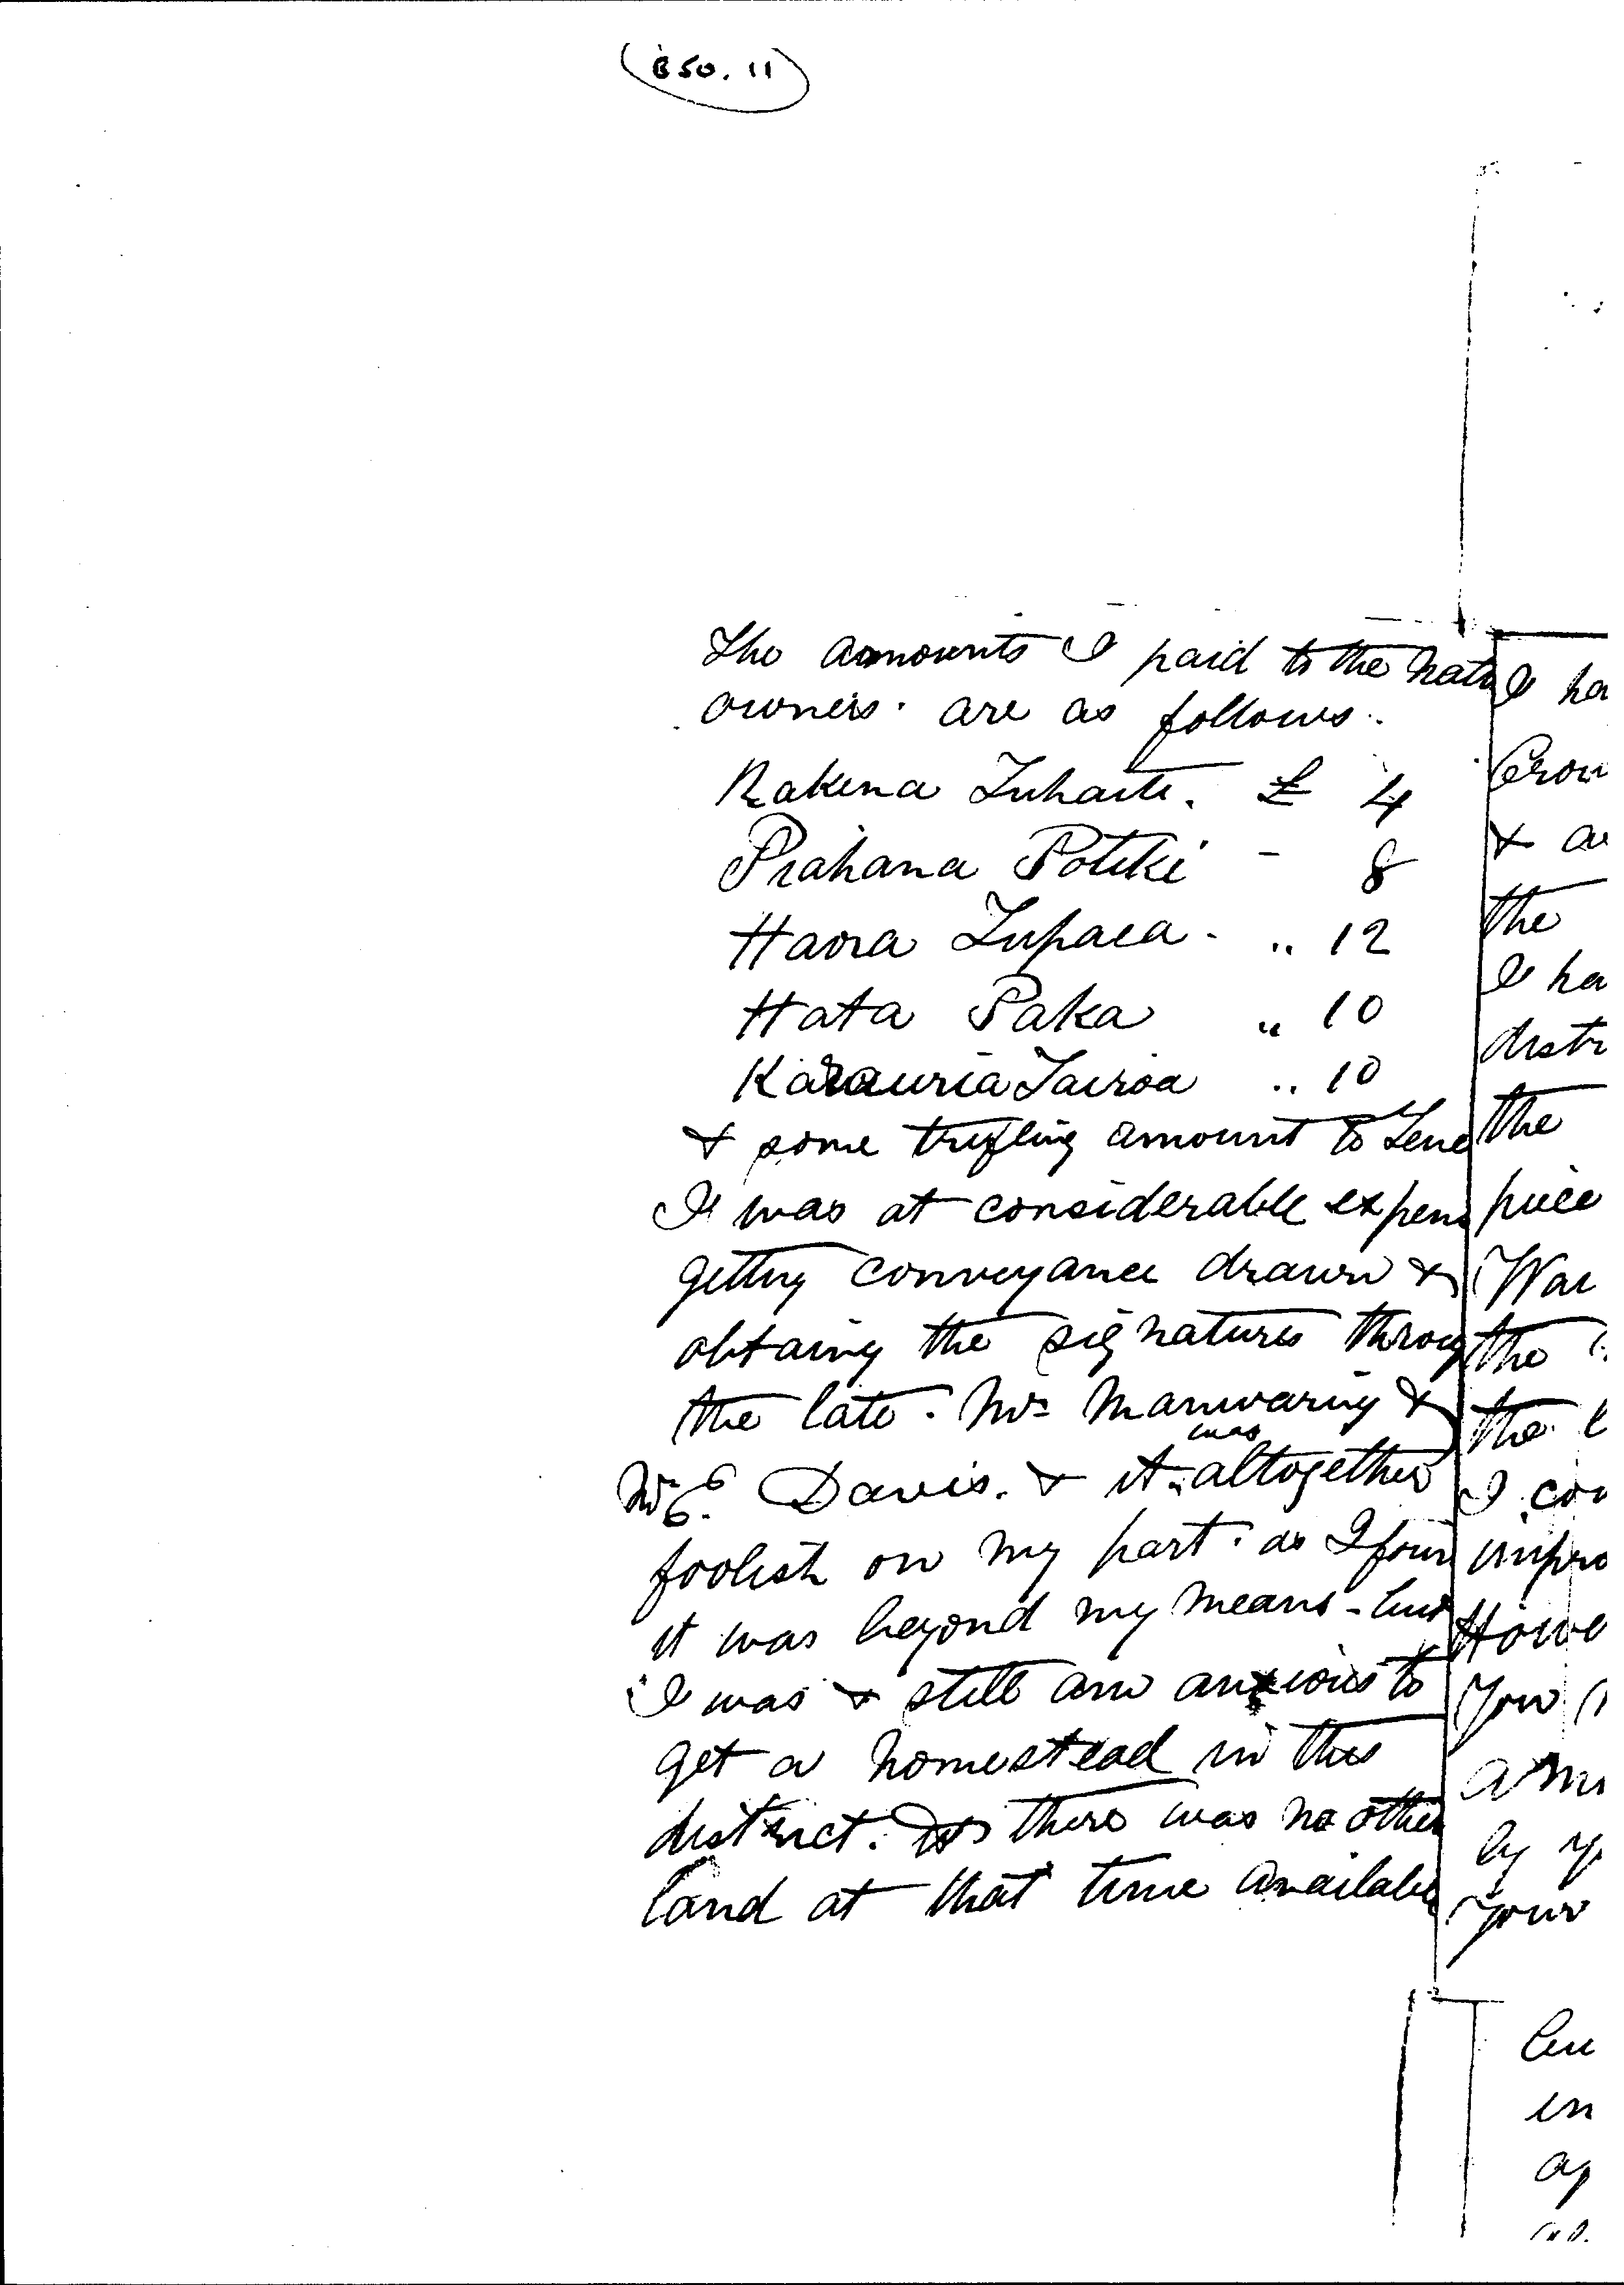 B50.11
The amounts I paid to the nat
owners. are as follows.
Rakena Tuhaiti. £ 4
Piahana Potiki - 8
Haora Tupaea - .. 12
Hata Paka " 10
Karauria Tairoa .. 10
& some trifling amount to Tene
I was at considerable expen
getting conveyance drawn &
obtaing the signatures throug
the late. Mr Manwaring &
Mr E. Davis. & it was altogether
foolish on my part. as I foun
it was beyond my means - but
I was & still am anxious to
get a homestead in this
district. as there was no other
land at that time availabl
I ha
Crow
& a
the
I ha
distr
the
piece
Wai
the
the l
I con
impro
Howe
you
a m
by y
your
in
ap